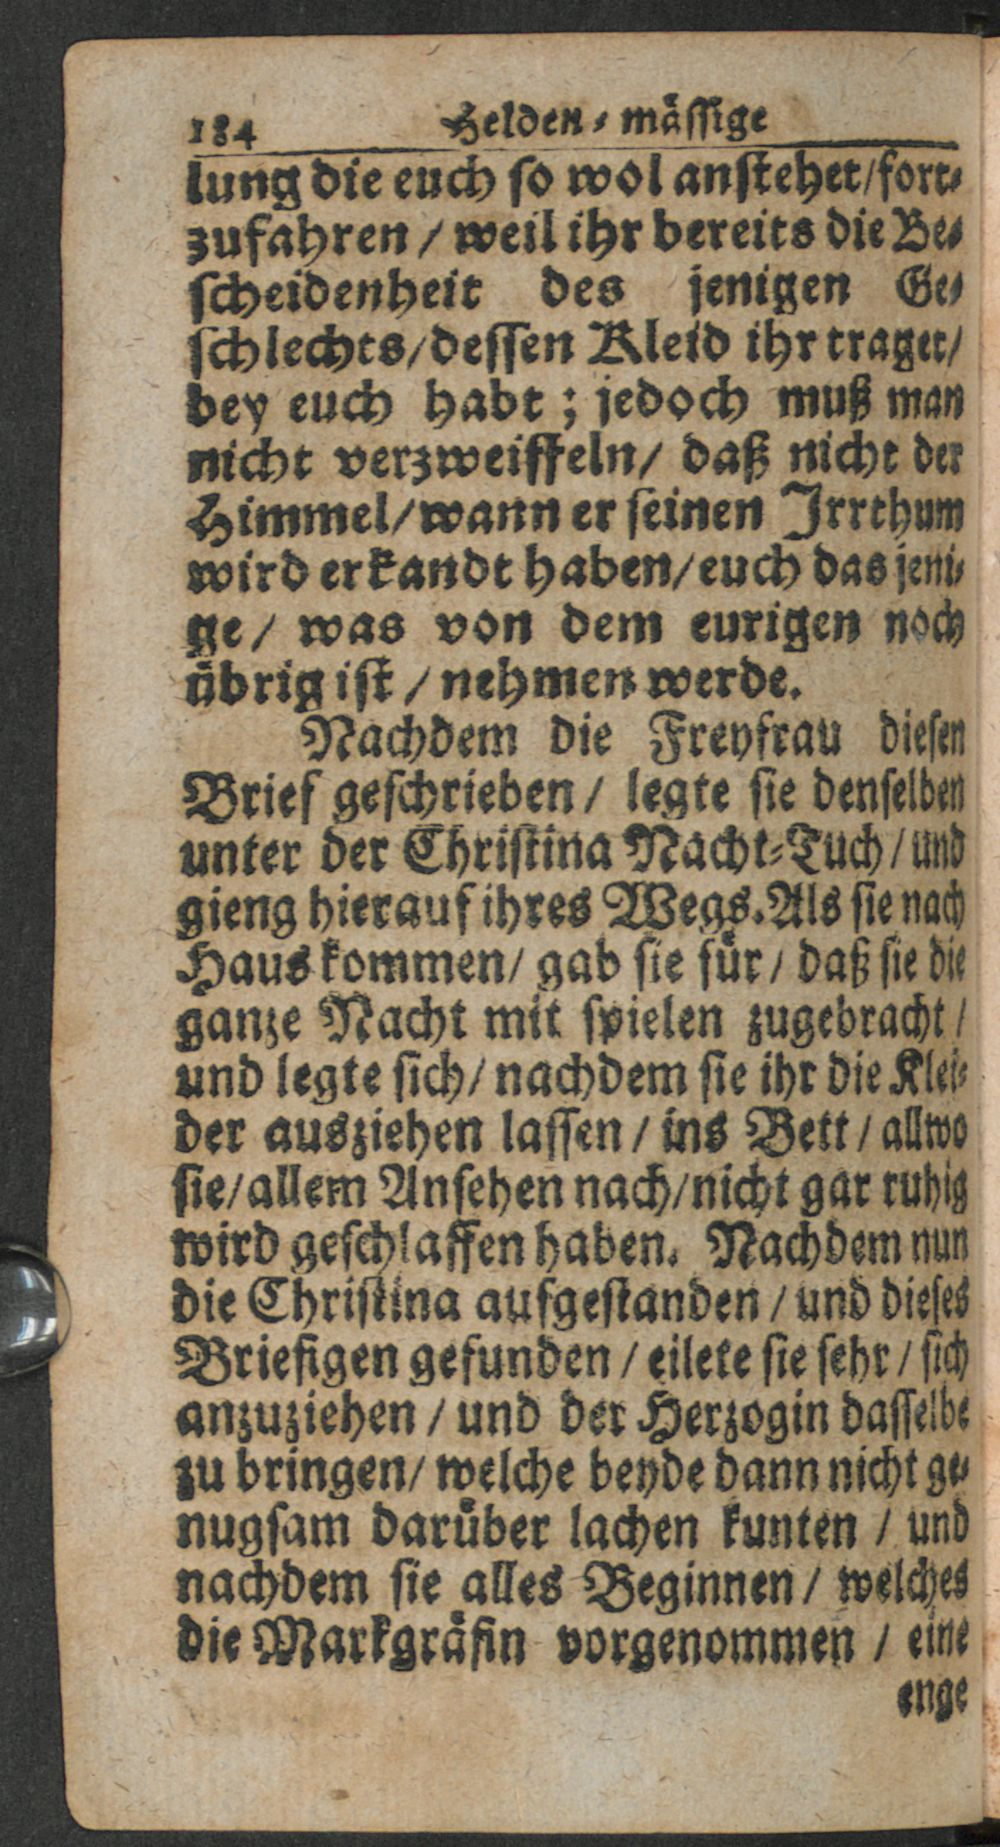 184 Helden-mässige
lung die euch so wol anstehet/fort-
zufahren / weil ihr bereits die Be-
scheidenheit des jenigen Ge-
schlechts/dessen Kleid ihr traget/
bey euch habt; jedoch muß man
nicht verzweiffeln/ daß nicht der
Himmel/wann er seinen Irrthum
wird erkandt haben/euch das jeni-
ge/ was von dem eurigen noch
übrig ist / nehmen werde.
Nachdem die Freyfrau diesen
Brief geschrieben / legte sie denselben
unter der Christina Nacht-Tuch / und
gieng hierauf ihres Wegs. Als sie nach
Haus kommen/ gab sie für / daß sie die
ganze Nacht mit spielen zugebracht /
und legte sich/ nachdem sie ihr die Klei-
der ausziehen lassen / ins Bett / allwo
sie/allem Ansehen nach/nicht gar ruhig
wird geschlaffen haben. Nachdem nun
die Christina aufgestanden / und dieses
Briefigen gefunden / eilete sie sehr / sich
anzuziehen / und der Herzogin dasselbe
zu bringen/ welche beyde dann nicht ge-
nugsam darüber lachen kunten / und
nachdem sie alles Beginnen / welches
die Markgräfin vorgenommen / eine
enge